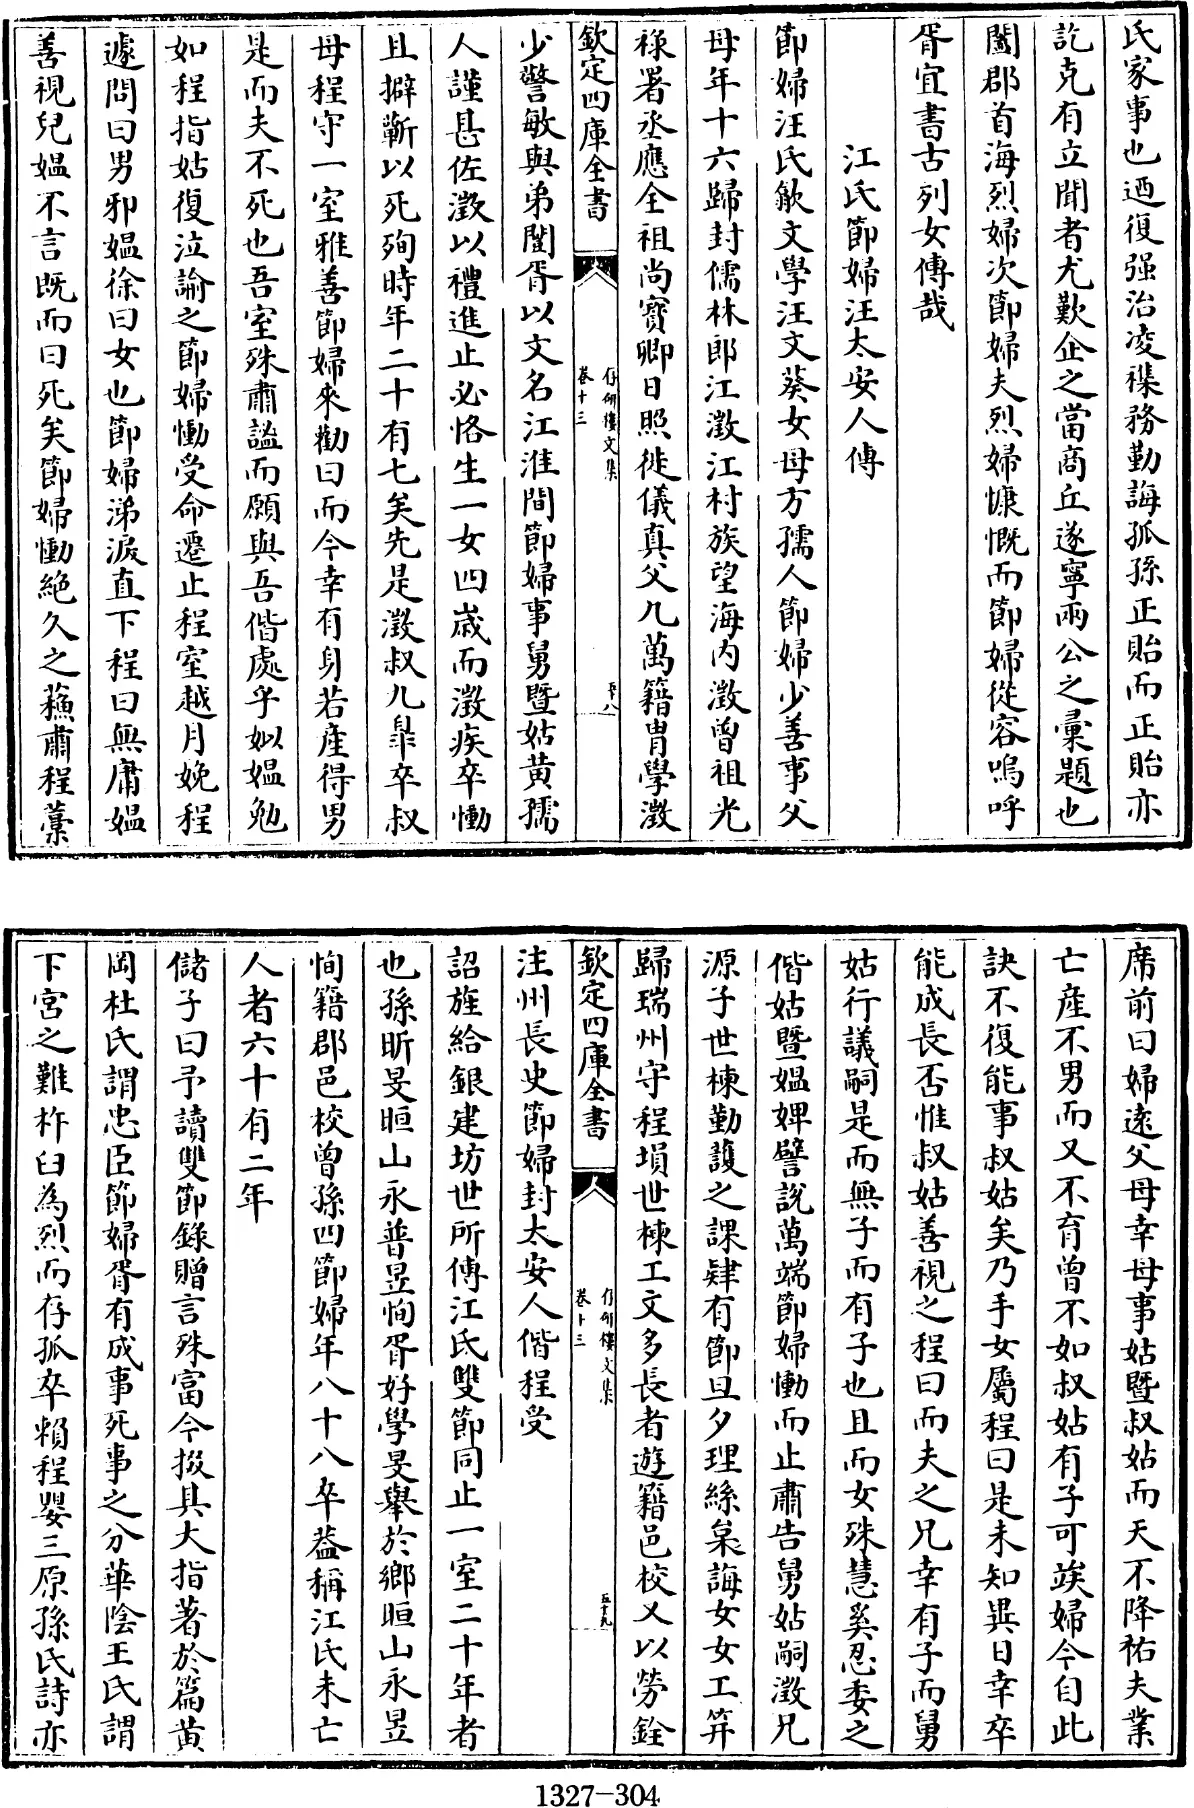 氏家事也迺復强治凌襍務勤誨孤孫正貽而正貽亦
訖克有立聞者尤歎企之當商丘遂寧兩公之彙題也
闔郡首海烈婦次節婦夫烈婦慷慨而節婦從容嗚呼
胥宜書古列女傳哉
江氏節婦汪太安人傳
節婦汪氏歙文學汪文葵女母方孺人節婦少善事父
母年十六歸封儒林郎江澂江村族望海内澂曾祖光
祿署丞應全祖尚寶卿日照徙儀真父九萬籍胄學澂
欽定四庫全書
存研樓文集
卷十三
五十八
少警敏與弟闓胥以文名江淮間節婦事舅暨姑黄孺
人謹甚佐澂以禮進止必恪生一女四歲而澂疾卒慟
且擗蘄以死殉時年二十有七矣先是澂叔九臯卒叔
母程守一室雅善節婦來勸曰而今幸有身若産得男
是而夫不死也吾室殊肅謐而願與吾偕處乎姒媪勉
如程指姑復泣諭之節婦慟受命遷止程室越月娩程
遽問曰男邪媪徐曰女也節婦涕淚直下程曰無庸媪
善視兒媪不言既而曰死矣節婦慟絶久之蘓肅程藁
席前曰婦遠父母幸母事姑暨叔姑而天不降祐夫業
亡産不男而又不育曾不如叔姑有子可竢婦今自此
訣不復能事叔姑矣乃手女屬程曰是未知異日幸卒
能成長否惟叔姑善視之程曰而夫之兄幸有子而舅
姑行議嗣是而無子而有子也且而女殊慧奚忍委之
偕姑暨媪婢譬説萬端節婦慟而止肅告舅姑嗣澂兄
源子世棟勤䕶之課肄有節旦夕理絲枲誨女女工笄
歸瑞州守程塤世棟工文多長者遊籍邑校又以勞銓
欽定四庫全書
存研樓文集
卷十三
五十九
注州長史節婦封太安人偕程受
詔旌給銀建坊世所傳江氏雙節同止一室二十年者
也孫昕旻晅山永普昱恂胥好學旻舉於鄉晅山永昱
恂籍郡邑校曾孫四節婦年八十八卒葢稱江氏未亡
人者六十有二年
儲子曰予讀雙節錄贈言殊富今掇具大指著於篇黄
岡杜氏謂忠臣節婦胥有成事死事之分華陰王氏謂
下宮之難杵臼為烈而存孤卒賴程嬰三原孫氏詩亦
1327-304